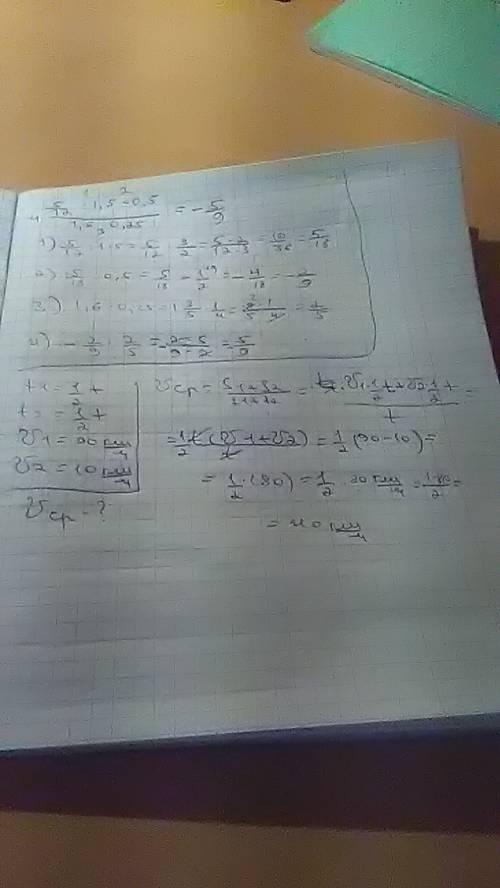 1 2
4. 5/12 : 1,5 - 0,5 / 1,6 · 0,25 = - 5/9
1) 5/12 : 1,5 = 5/12 · 2/3 = 5·2/12·3 = 10/36 = 5/18
2) 5/18 - 0,5 = 5/18 - 1/2 = - 4/18 = - 2/9
3) 1,6 · 0,25 = 1 3/5 · 1/4 = = 2/5
4) - 2/9 : 2/5 = = 5/9
t1 = 1/2 t
t2 = 1/2 t
v1 = 90 км/ч
v2 = 10 км/ч
vср - ?
vср = S1+S2 / t1+t2 = v1·1/2 t + v2·1/2 t / t =
= 1/2 t (v1+v2) / t = 1/2 (90-10) =
= 1/2 · (80) = 1/2 · 80 км/ч = 1·80/2 =
= 40 км/ч